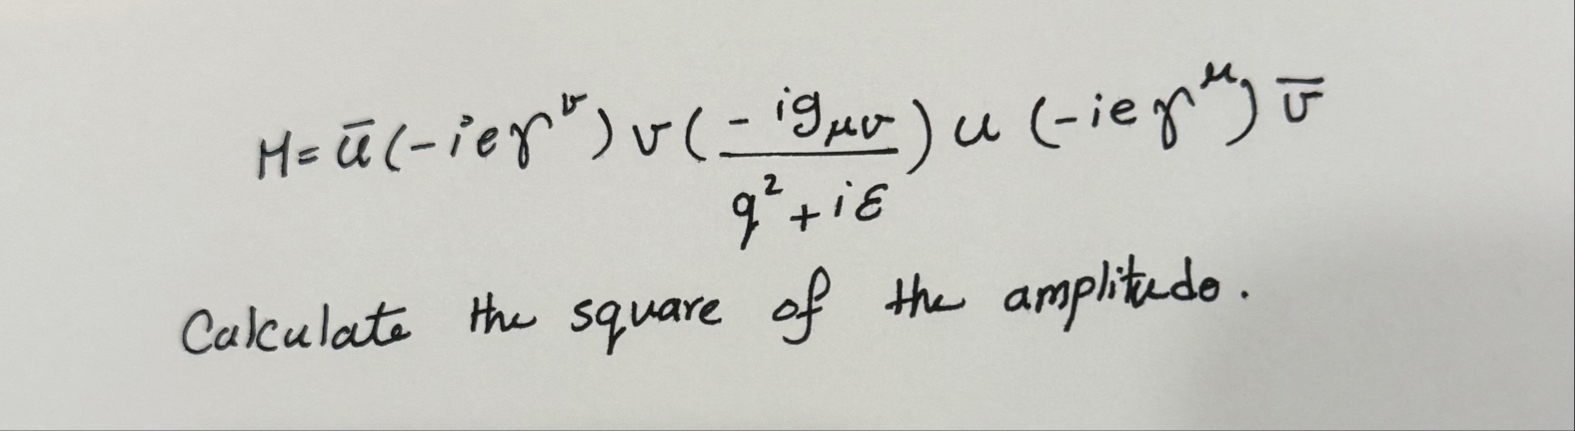 M = ū(-ieγ^ν) v (-ig_μν / q² + iε) u (-ieγ^μ) v̄
Calculate the square of the amplitude.